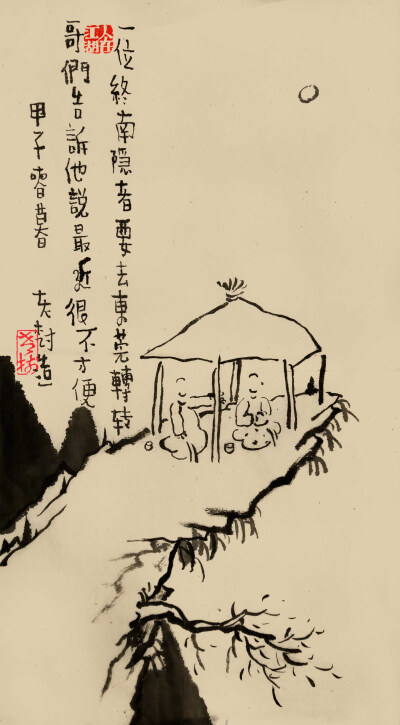 人在江湖
一位終南隱者要去東莞轉转
哥們告訴他説最近很不方便
甲春
老树造
老樹